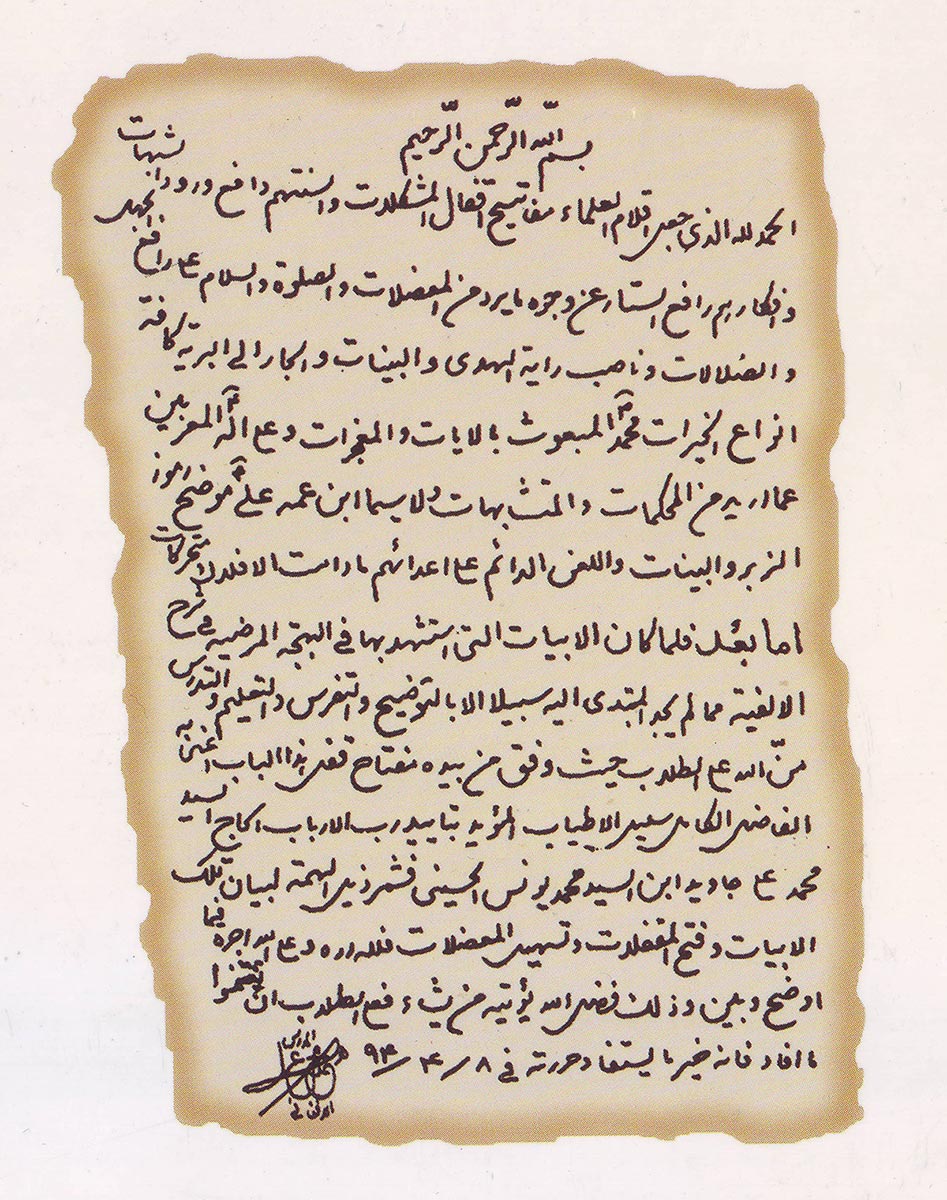 بسم الله الرّحمن الرّحيم
الحمد لله الذى جعل اقلام العلماء مفاتيح اقفال المشكلات والسنتهم دافع ورود الشبهات
وافكارهم رافع الستار عن وجوه ما يرد من المعضلات والصلوة والسلام على رافع الجهل
والضلالات وناصب راية الهدى والبينات والجار الى البرية كافة
انواع الخيرات محمد ص المبعوث بالايات والمعجزات وعلى آله المعربين
عما اريد من المحكمات والمتشابهات ولا سيما ابن عمه على موضح رموز
الزبر والبينات واللعن الدائم على اعدائهم مادامت الافلاك متحركات
اما بعد فلما كان الابيات التى استشهد بها فى البهجة المرضيه فى شرح
الالفية مما لم يجد المبتدى اليه سبيلا الا بالتوضيح والتفرس والتعليم والتدرس
منّ الله على الطلاب حيث وفق من بيده مفتاح قفل هذا الباب اعنى به
الفاضل الكامل سليل الاطياب المؤيد بتاييد رب الارباب الحاج السيد
محمد على جاويد ابن السيد محمد يونس الحسينى فشمر ذيل الهمة لبيان تلك
الابيات وفتح المقفلات وتسهيل المعضلات فلله دره وعلى الله اجره فيما
اوضح وبين وذلك فضل الله يؤتيه من يشاء فعلى الطلاب ان يغتنموا
ما افاد فانه خير ما يستفاد حررته فى ٨/ ٤/ ٩٤
المدرس